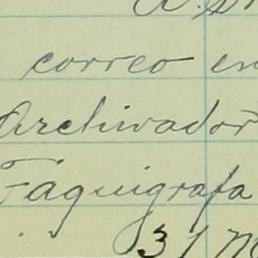 correo en
Archivador
Taquigrafa
31